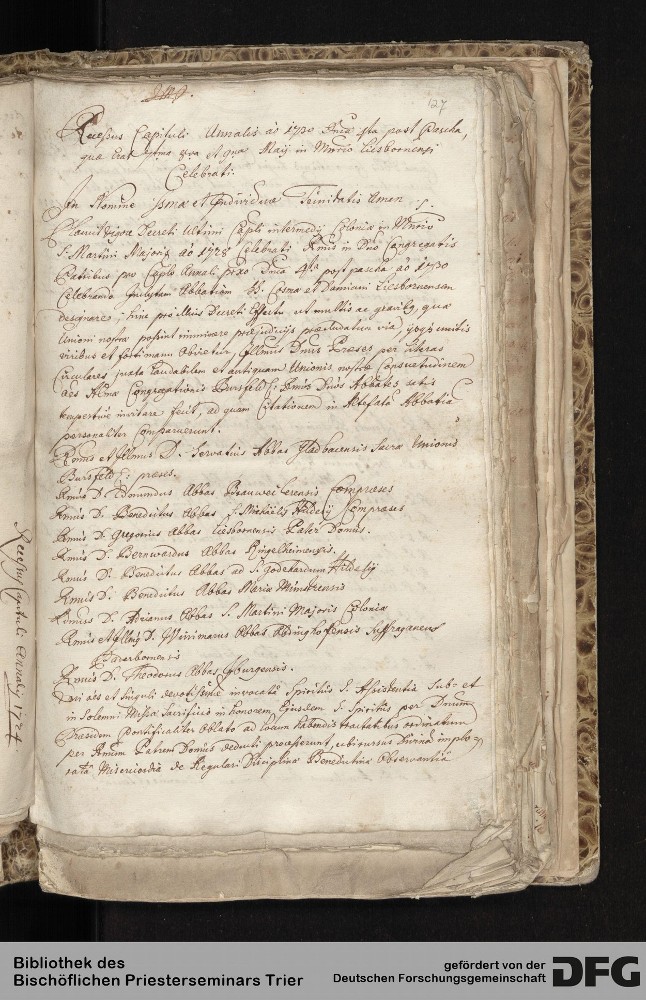 127
Recessus Capituli Annalis aõ 1730 Dnca 4ta post Pascha,
qua erat 7ma 8va et 9na Maij in Mnrio Liesbornensi
Celebrati.
In Nomine Ssmæ et Individuæ Trinitatis Amen
Decreti ultimi Capli intermedij Coloniæ in Mnrio
S. Martini Majoris aõ 1728 Celebrati Rmis in Dno Congregatis
Patribus pro Caplo Annali pro Dnca 4ta post pascha aõ 1730
Celebrando Inclytam Abbatiam SS. Cosmæ et Damiani Liesbornensem
designare, hinc pro illius Decreti Effectu ut multis ac gravibq, quæ
Unioni nostræ possint imminere præjudicijs præcludatur via,
viribus et obvietur, Illmus Dnus Præses per literas
Circulares juxta laudabilem et antiquam Unionis nostræ Consuetudinem
oes Almæ Congregationis Bursfeld: Rmos Dnos Abbates satis
tempestive invitare fecit, ad quam Citationem in Altefata Abbatia
personaliter Comparuerunt.
Rmus et Illmus D. Servatius Abbas Gladbacensis Sacræ Unionis
Bursfeld: præses.
Rmus D. Edmundus Abbas Brauweilerensis Compræses
Rmus D. Benedictus Abbas S. Michaelis Hildesij Compræses
Rmus D. Gregorius Abbas Liesbornensis Pater Domus.
Rmus D. Bernwardus Abbas Ringelheimensis.
Rmus D. Benedictus Abbas ad S. Godehardum Hildesij
Rmus D. Benedictus Abbas Mariæ Münstrensis
Rmus D. Adrianus Abbas S. Martini Majoris Coloniæ
Rmus et Illmus D. Winimarus Abbas Abdinghoffensis Suffraganeus
Paderbornensis
Rmus D. Theodorus Abbas Iburgensis.
Qui oes et singuli devotissime invocata Spiritus S. Assistentia sub et
in Solemni Missæ Sacrificio in honorem Ejusdem S. Spiritus per Dnum
Præsidem Pontificaliter Oblato ad locum habendis tractatibus ordinatum
per Rmum Patrem Domus deducti processerunt, ubi rursus Divina implo-
rata Misericordia de Regulari Disciplina Benedictina Observantia
Recessus Capituli Annalis 1724
Bibliothek des
Bischöflichen Priesterseminars Trier
gefördert von der
Deutschen Forschungsgemeinschaft
DFG